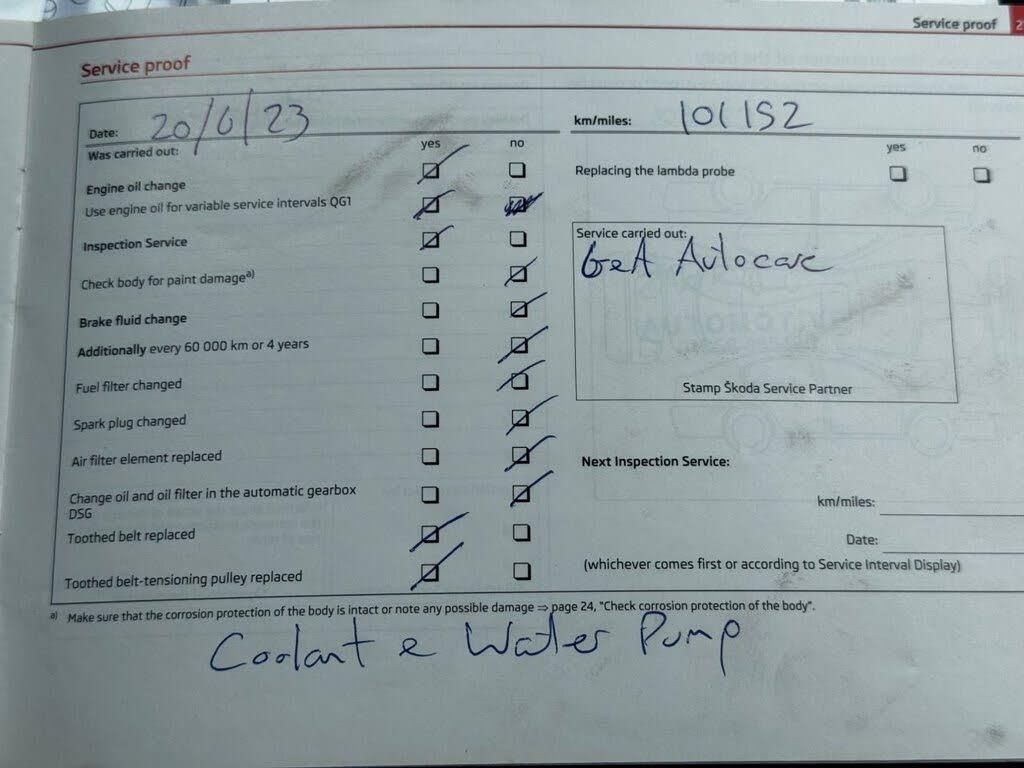 Service proof 2
Service proof
Date: 20/6/23
km/miles: 101152
Was carried out: yes no
yes no
Engine oil change
Replacing the lambda probe
Use engine oil for variable service intervals QG1
Inspection Service
Service carried out:
G&A Autocare
Check body for paint damage a)
Brake fluid change
Additionally every 60 000 km or 4 years
Fuel filter changed
Stamp Škoda Service Partner
Spark plug changed
Air filter element replaced
Next Inspection Service:
Change oil and oil filter in the automatic gearbox
DSG
km/miles:
Toothed belt replaced
Date:
(whichever comes first or according to Service Interval Display)
Toothed belt-tensioning pulley replaced
a) Make sure that the corrosion protection of the body is intact or note any possible damage ⇒ page 24, "Check corrosion protection of the body".
Coolant & Water Pump